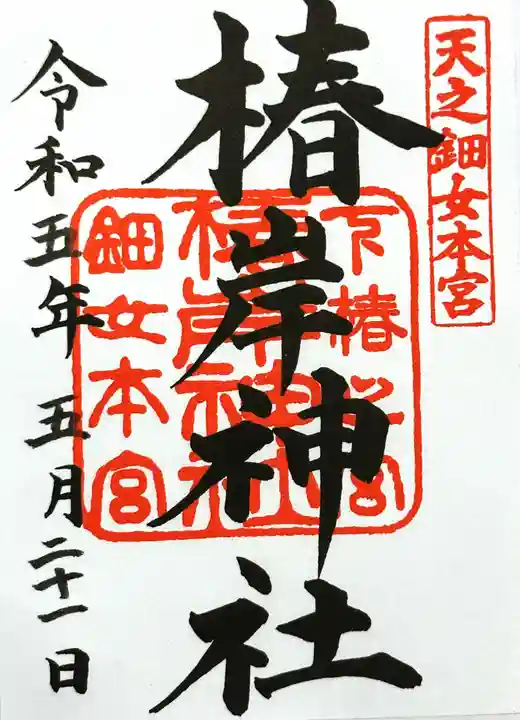 天之鈿女本宮
椿岸神社
下椿
宮
椿岸神社
鈿女本宮
令和五年 五月二十一日